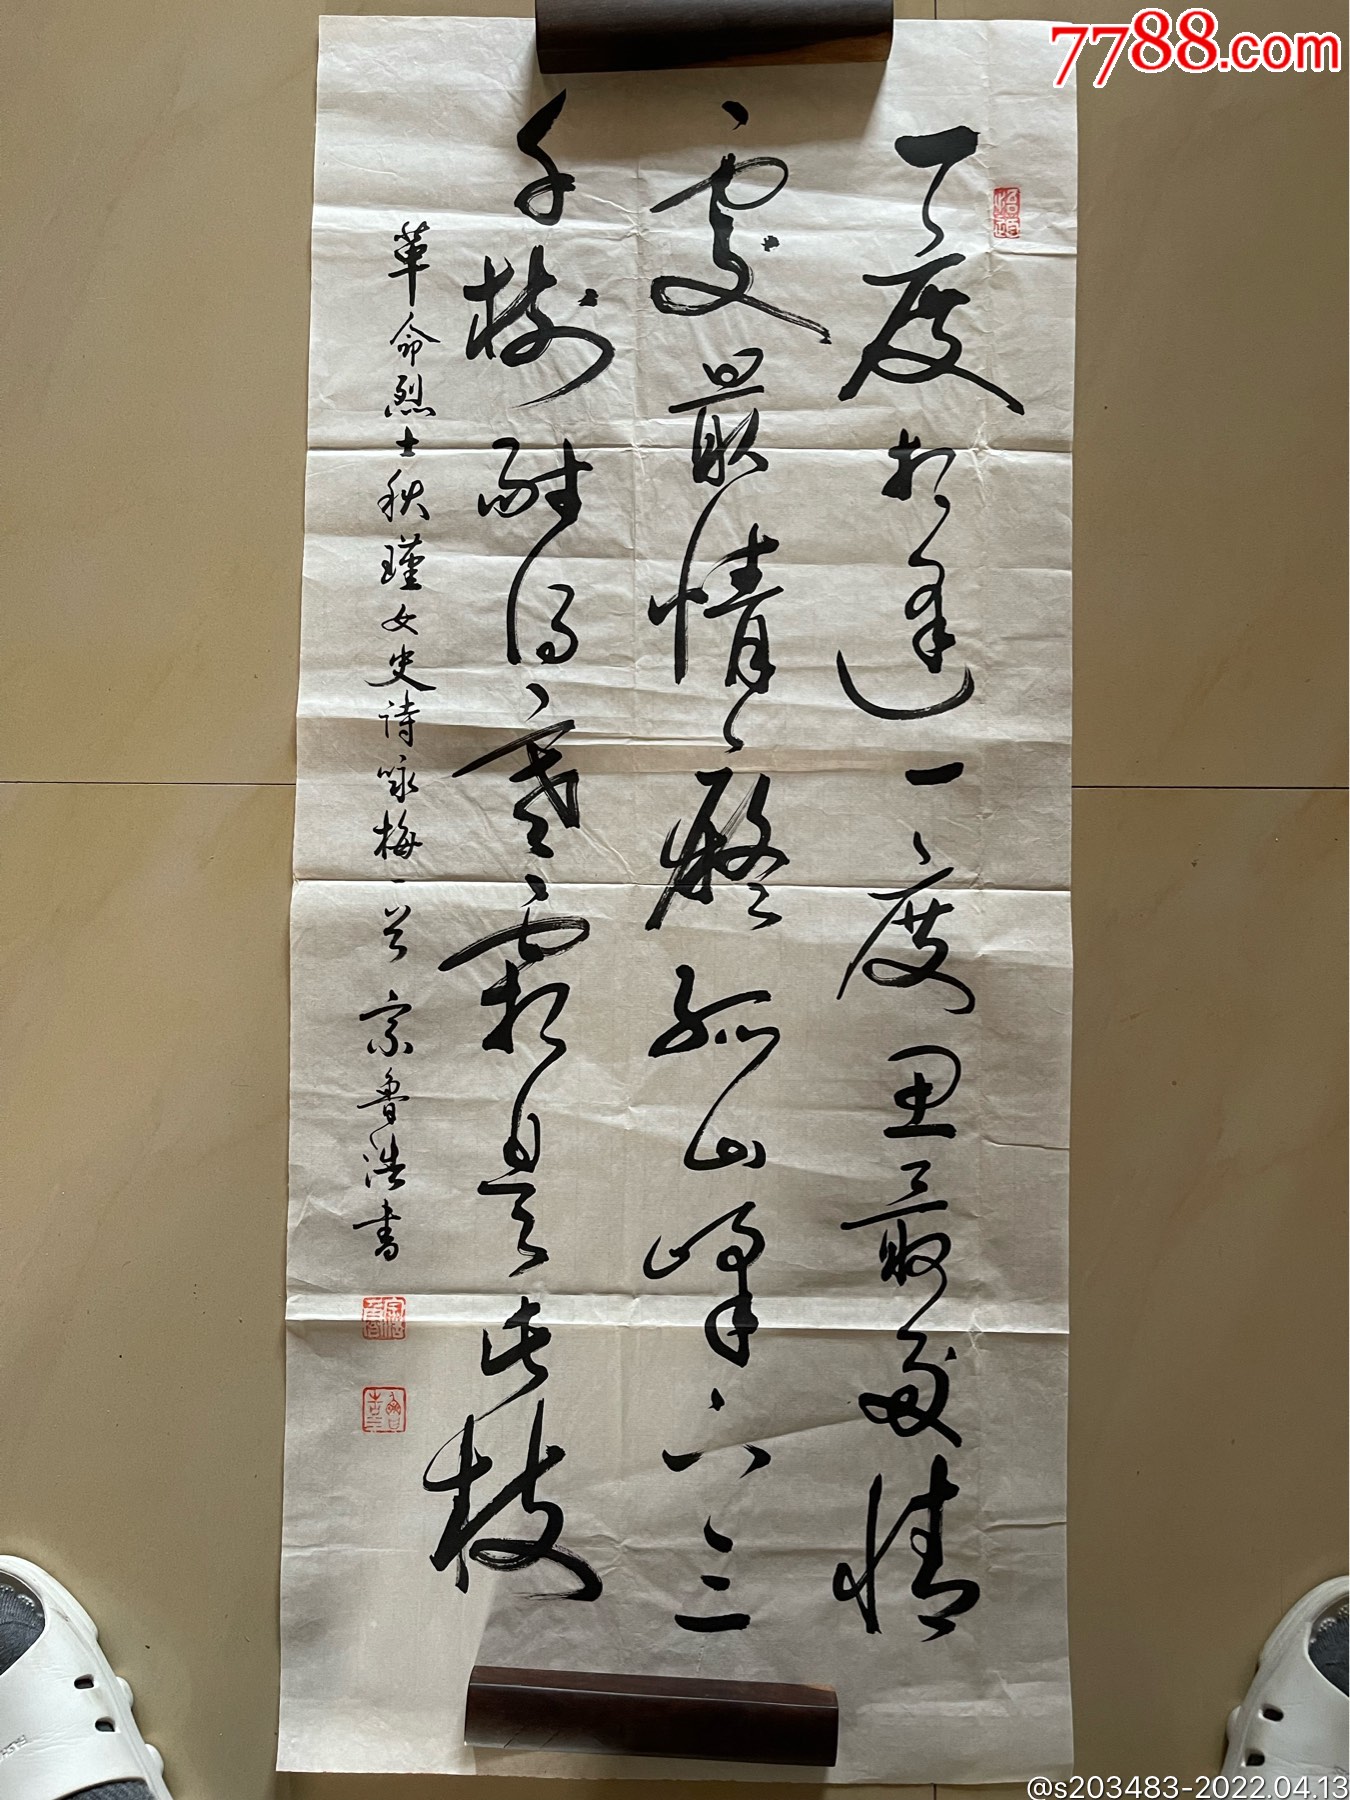 一度相逢一度思最多情
處最情癡孤山峰下三
千樹耐得寒霜是此枝
革命烈士秋瑾女史诗咏梅一首 宗魯浩書
7788.com
@s203483-2022.04.13